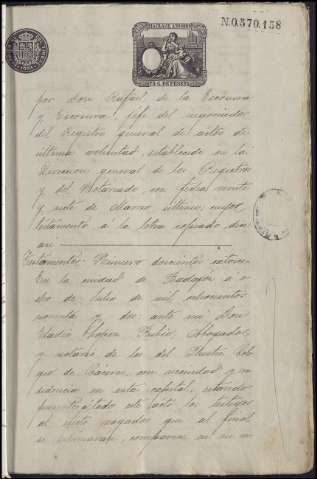 N.0.570.158
por Don Rafael de la Escosura
y Escosura, jefe del negociado
del Registro general de actos de
última voluntad, establecido en la
Direccion general de los Registros
y del Notariado, con fecha veinte
y siete de Marzo último, cuyo
testamento á la letra copiado dice
asi:
Testamento: Número doscientos catorce.
En la ciudad de Badajoz á
dos de Julio de mil ochocientos
noventa y dos ante mi Don
Rubio, Abogado
y notario de los del Ilustre Cole
gio de Cáceres, con vecindad y re
sidencia en esta capital, estando
presentes á todo este acto los testigos
que al final
se nombrarán, comparece